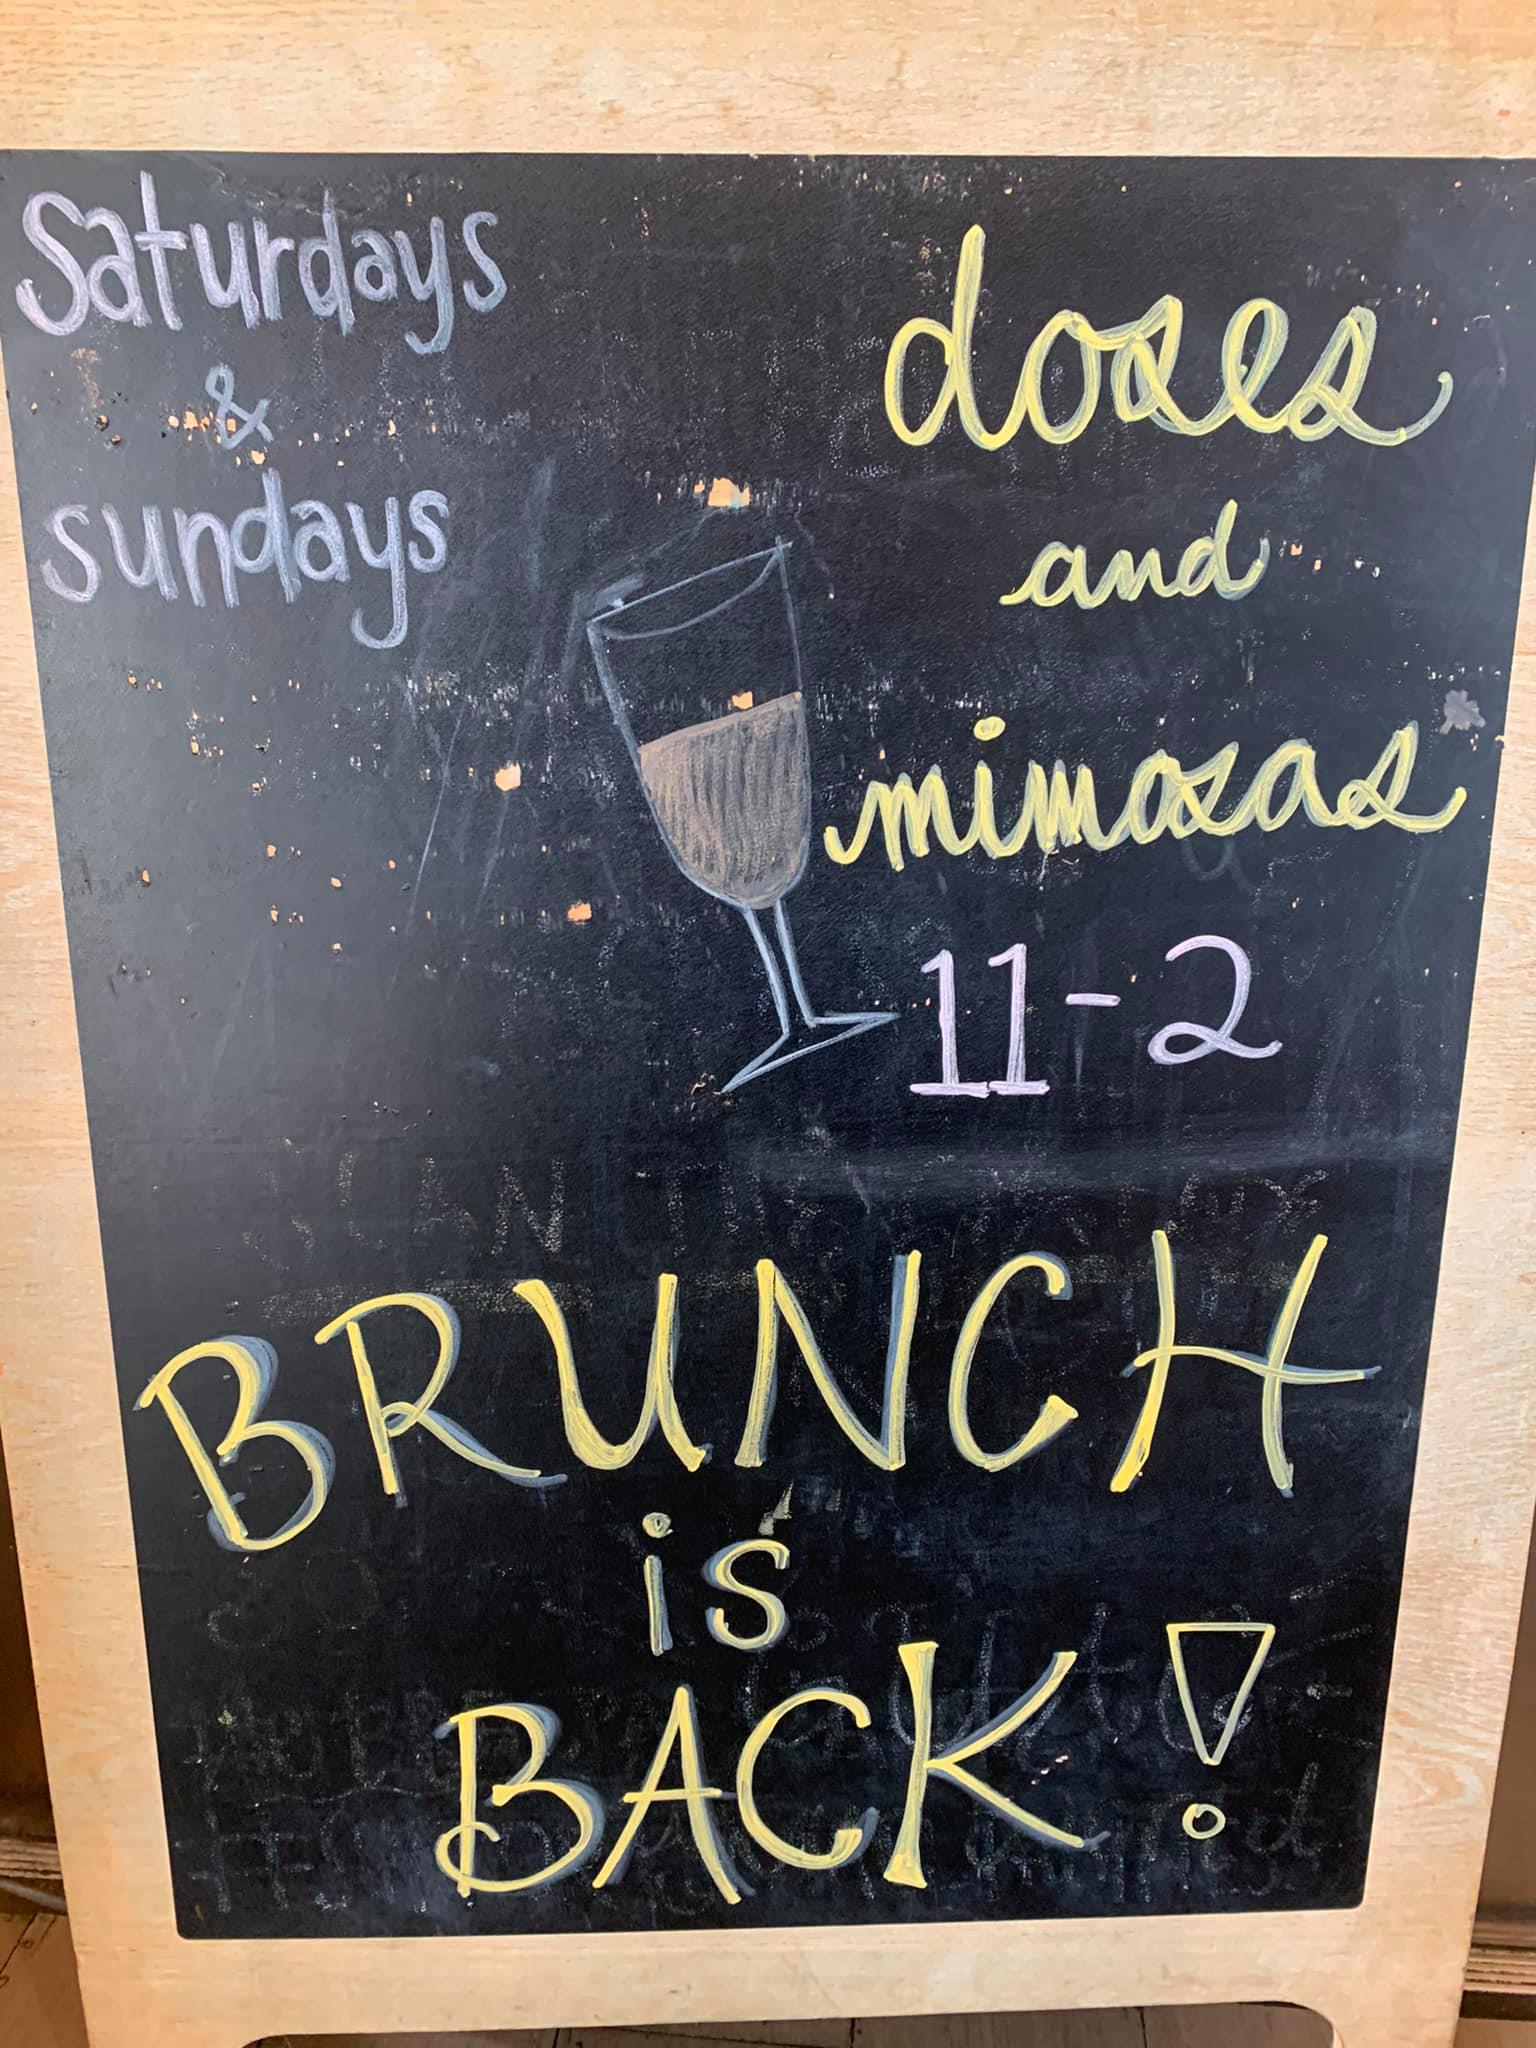 Saturdays
&
sundays
doses
and
mimosas
11-2
BRUNCH
is
BACK!